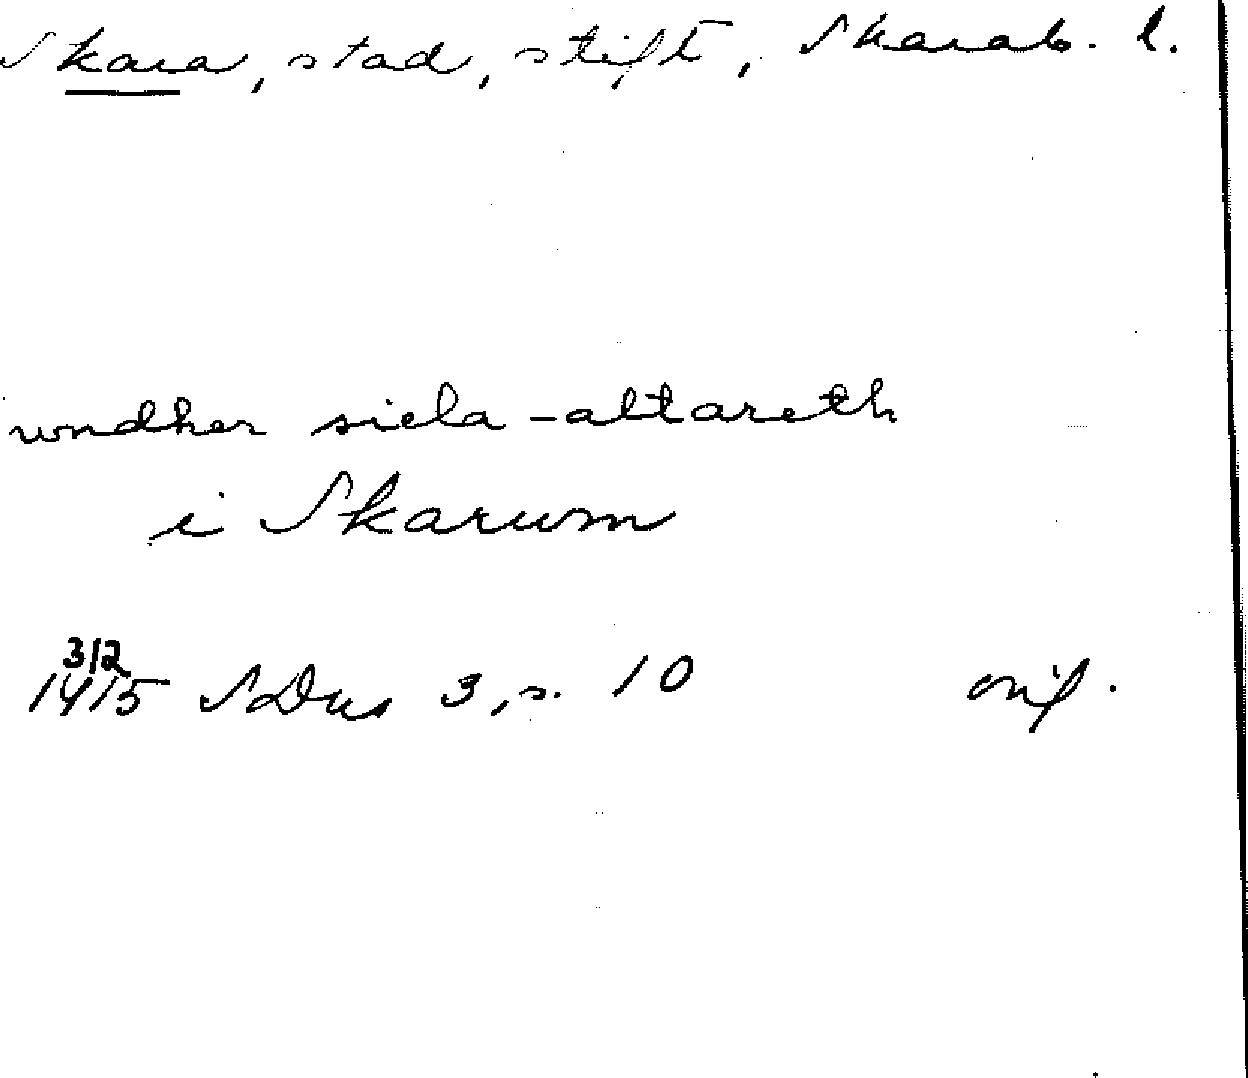 Skara, stad, stift, Skarab. l.
wndher siela-altareth
i Skarum
3/2
1415 SDns 3, s. 10 orig.